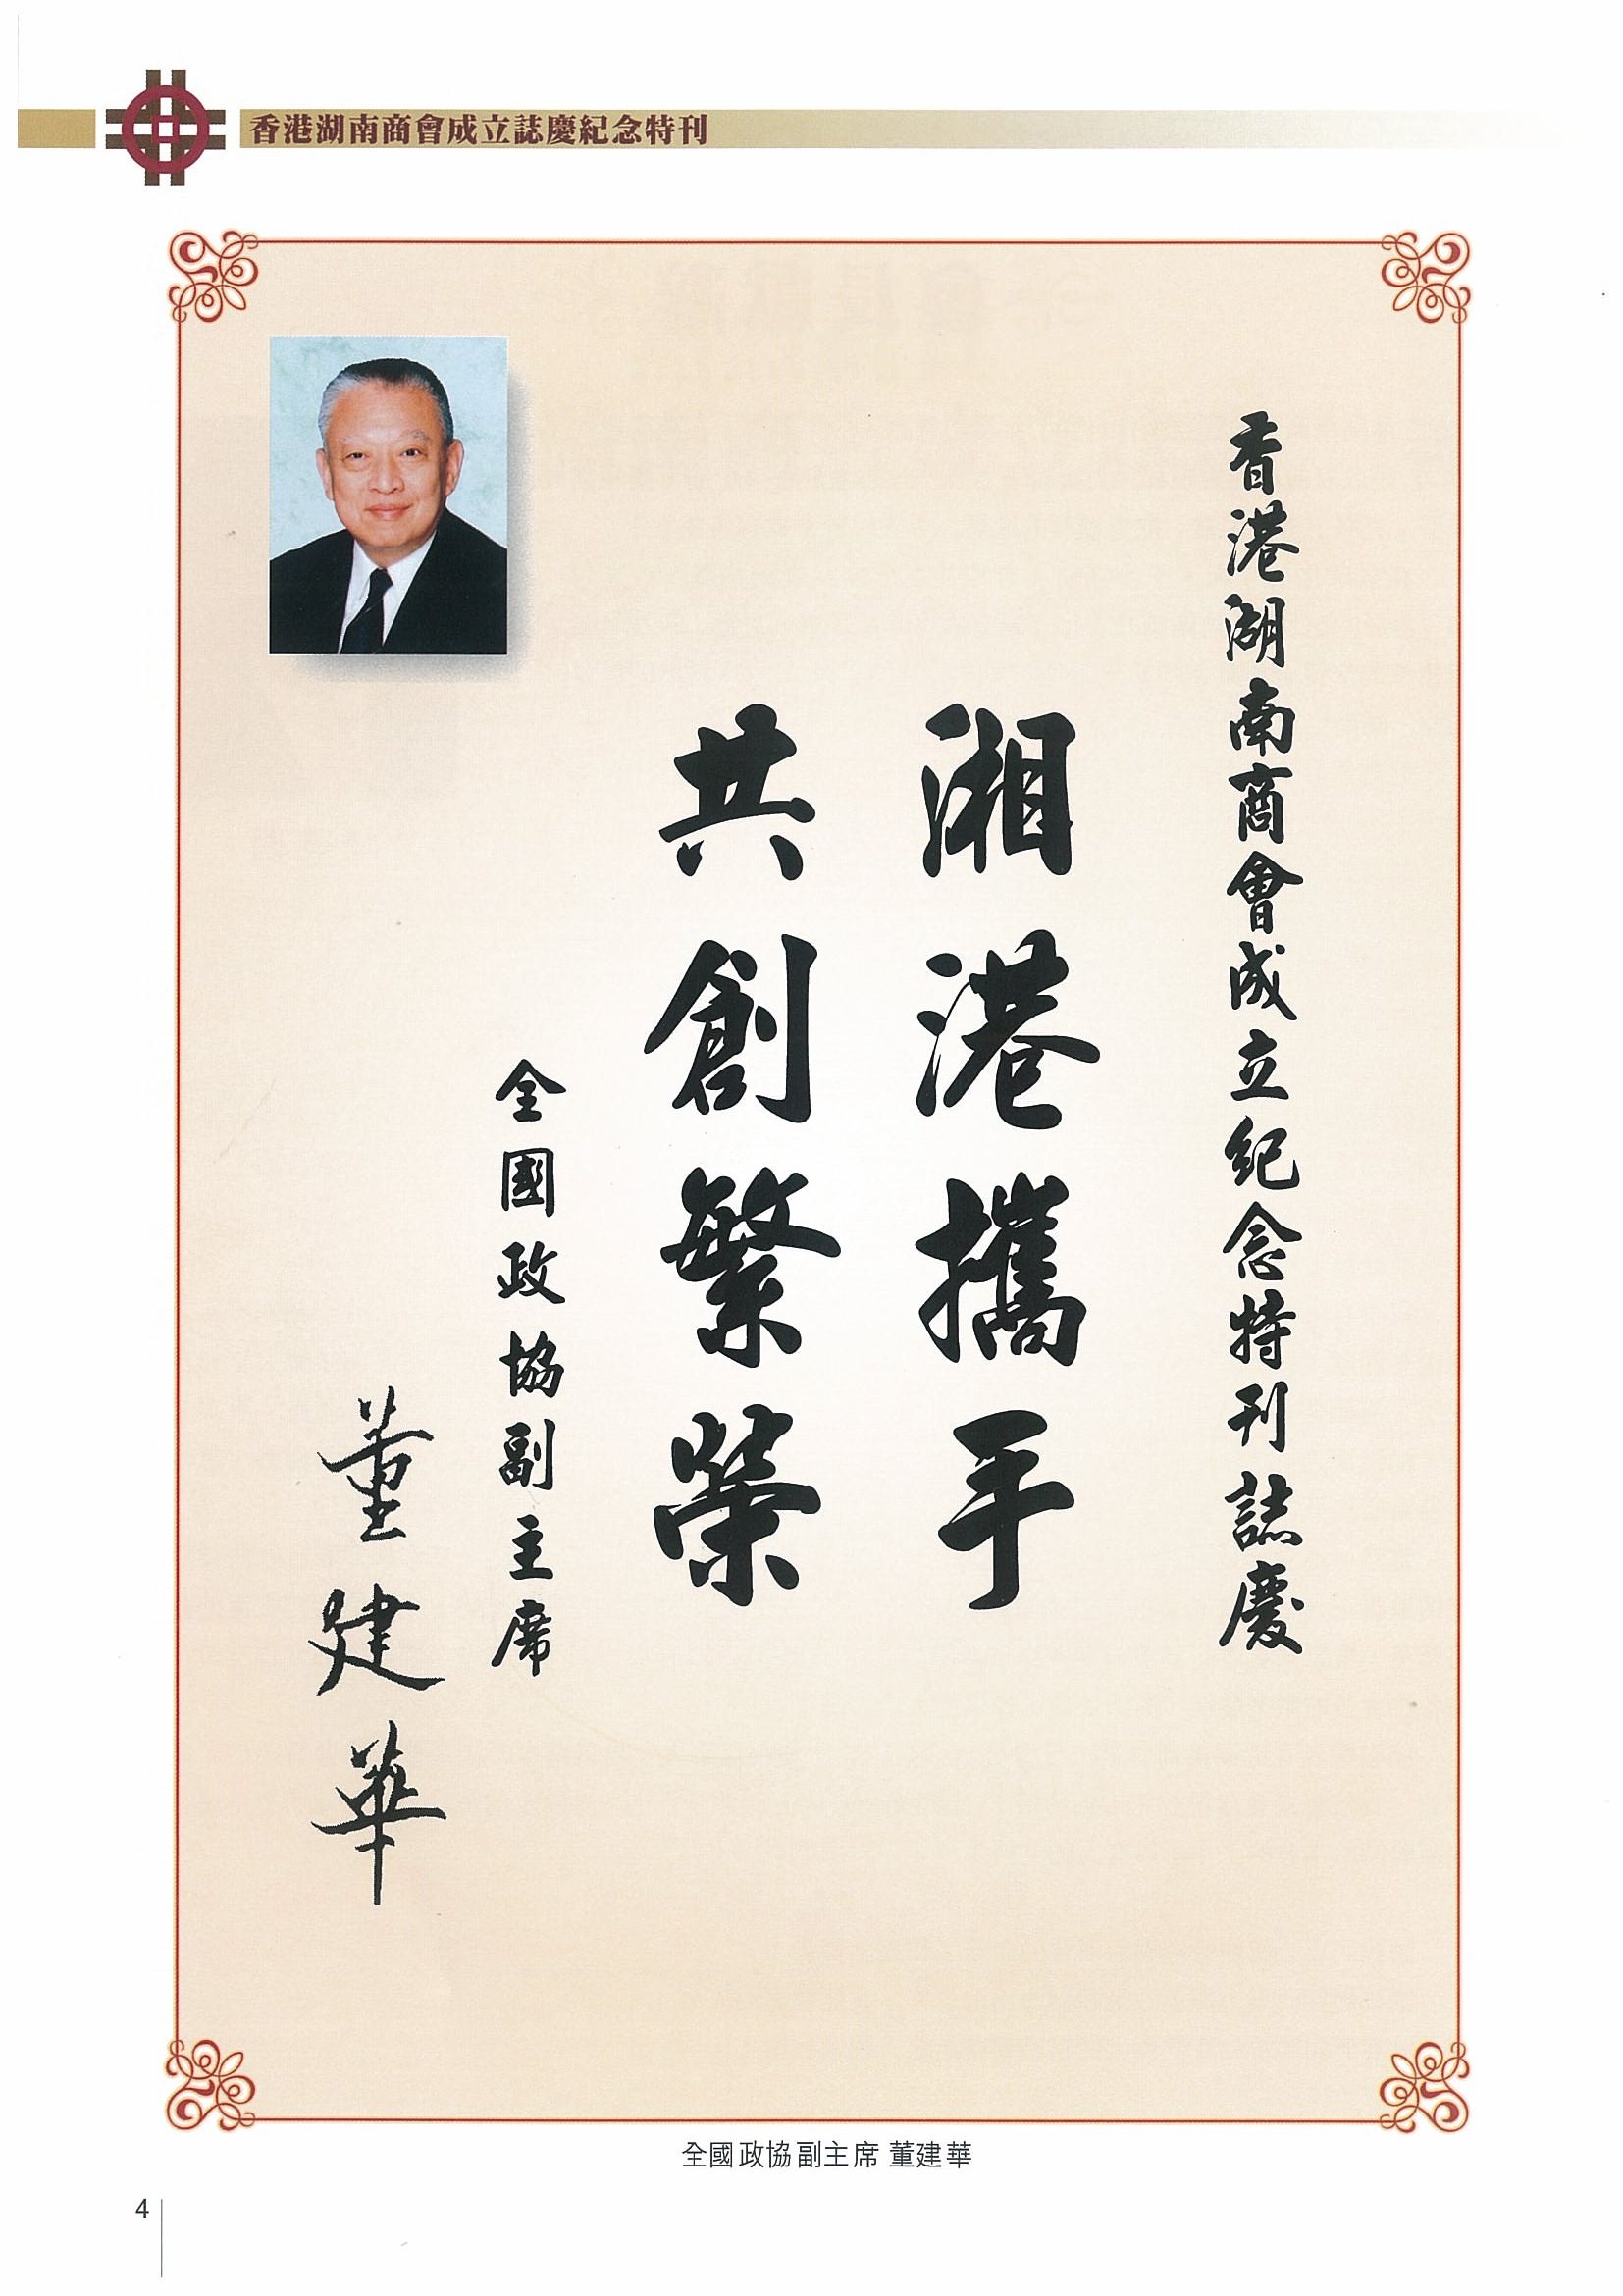 香港湖南商會成立誌慶紀念特刊
香港湖南商會成立紀念特刊誌慶
湘港攜手
共創繁榮
全國政協副主席
董建華
全國政協副主席 董建華
4